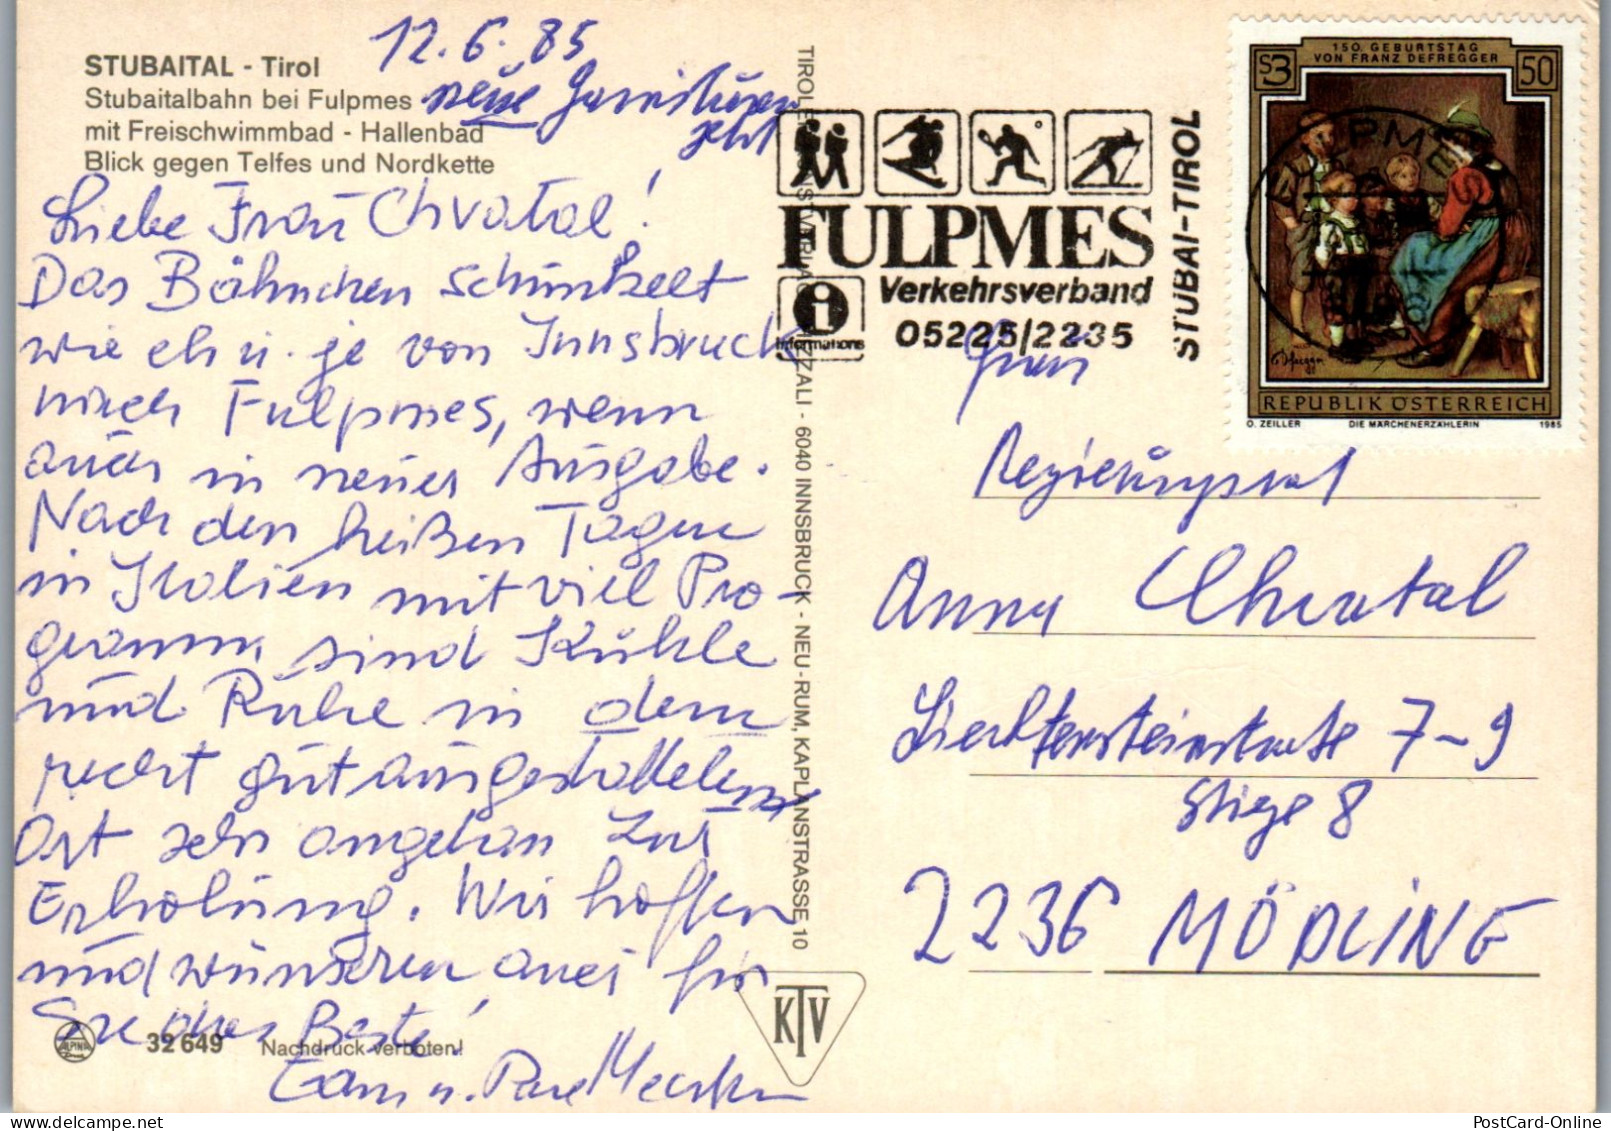 STUBAITAL - Tirol
Stubaitalbahn bei Fulpmes
mit Freischwimmbad - Hallenbad
Blick gegen Telfes und Nordkette
12.6.85
neue Garnituren
jetzt
Liebe Frau Chvatal!
Das Bähnchen schunkelt
wie eh u. je von Innsbruck
nach Fulpmes, wenn
auch in neuer Ausgabe.
Nach den heißen Tagen
in Italien mit viel Pro-
gramm sind Kühle
und Ruhe in dem
recht gut ausgestatteten
Ort sehr angetan zur
Erholung. Wir hoffen
und wünschen auch für
Sie das Beste!
32 649 Nachdruck verboten!
ALPINA
TIROLER KUNSTVERLAG CHIZZALI - 6040 INNSBRUCK - NEU-RUM, KAPLANSTRASSE 10
KTV
FULPMES
Verkehrsverband
05225/2235
i
Informations
STUBAI-TIROL
150. GEBURTSTAG
VON FRANZ DEFREGGER
S3 50
FULPMES
REPUBLIK ÖSTERREICH
O. ZEILLER DIE MÄRCHENERZÄHLERIN 1985
Frau
Regierungsrat
Anna Chvatal
Liechtensteinstraße 7-9
Stiege 8
2236 MÖDLING
PostCard-Online